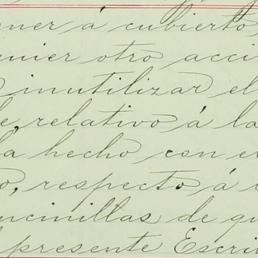 oner á cubierto
uier otro acci
inutilizar el
e, relativo á la
a hecho con e
o, respecto á
ucinillas de qu
presente Escri